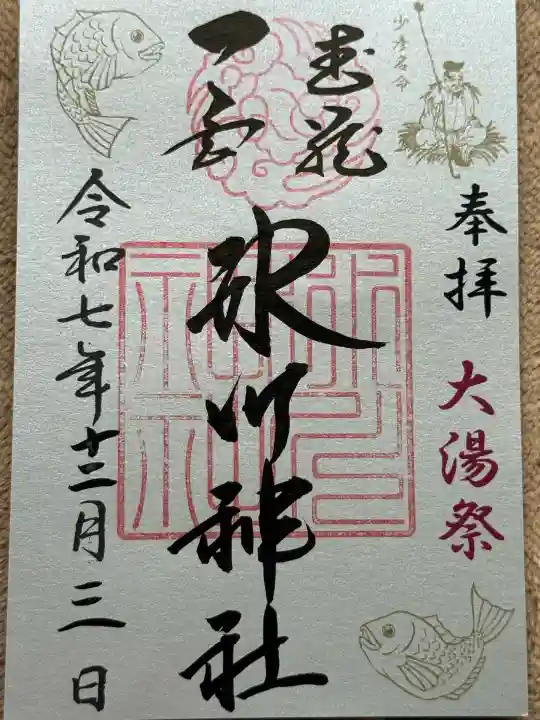 少彦名命
奉拝 大湯祭
武蔵
一宮
氷川神社
令和七年十二月三日
氷川
神社